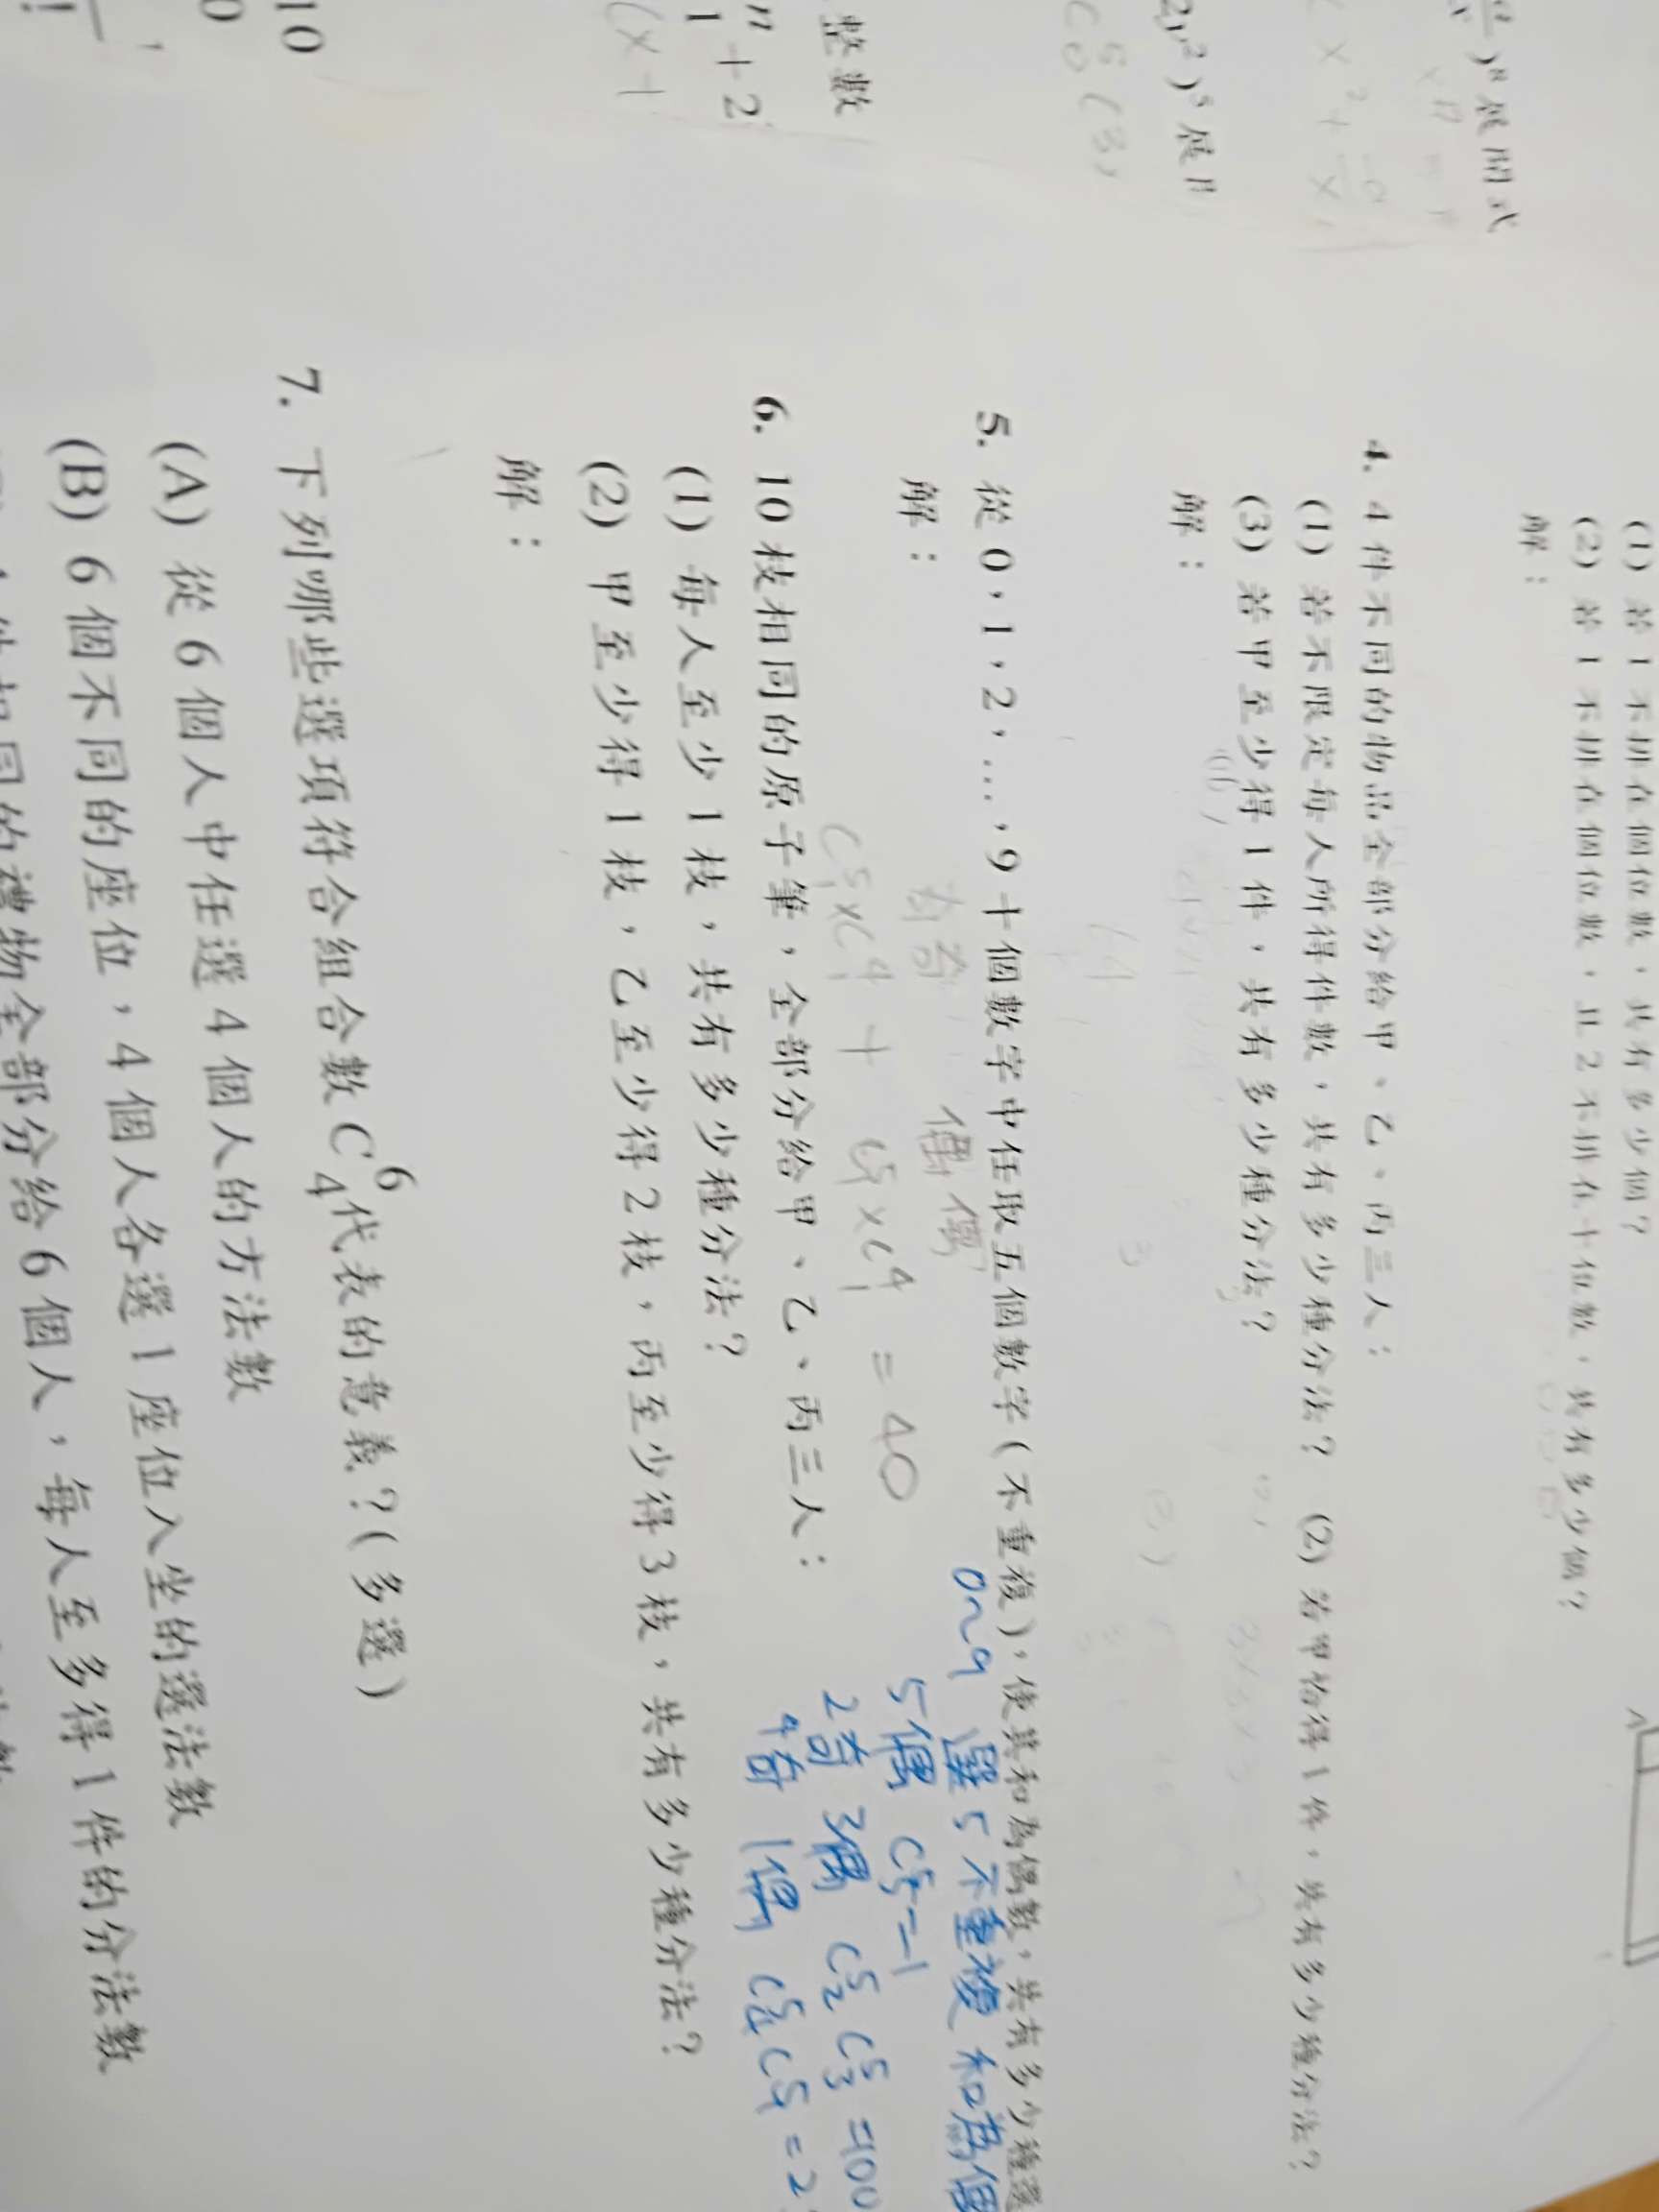 (1) 若 1 不排在個位數，共有多少個？
(2) 若 1 不排在個位數，且 2 不排在十位數，共有多少個？
解：
4. 4 件不同的物品全部分給甲、乙、丙三人：
(1) 若不限定每人所得件數，共有多少種分法？ (2) 若甲恰得 1 件，共有多少種分法？
(3) 若甲至少得 1 件，共有多少種分法？
解：
5. 從 0，1，2，…，9 十個數字中任取五個數字(不重複)，使其和為偶數，共有多少種選
解：
0~9 選 5 不重複 和為偶
5偶 C⁵₅=1
2奇 3偶 C⁵₂ C⁵₃ =100
4奇 1偶 C⁵₄ C⁵₁ = 2
偶偶
C⁵₁×C⁴₁ + C⁵₁×C⁴₁ = 40
6. 10 枝相同的原子筆，全部分給甲、乙、丙三人：
(1) 每人至少 1 枝，共有多少種分法？
(2) 甲至少得 1 枝，乙至少得 2 枝，丙至少得 3 枝，共有多少種分法？
解：
7. 下列哪些選項符合組合數 C⁶₄ 代表的意義？(多選)
(A) 從 6 個人中任選 4 個人的方法數
(B) 6 個不同的座位，4 個人各選 1 座位入坐的選法數
相同的禮物全部分給 6 個人，每人至多得 1 件的分法數
)⁸ 展開式
)⁵ 展
整數
+ 2
10